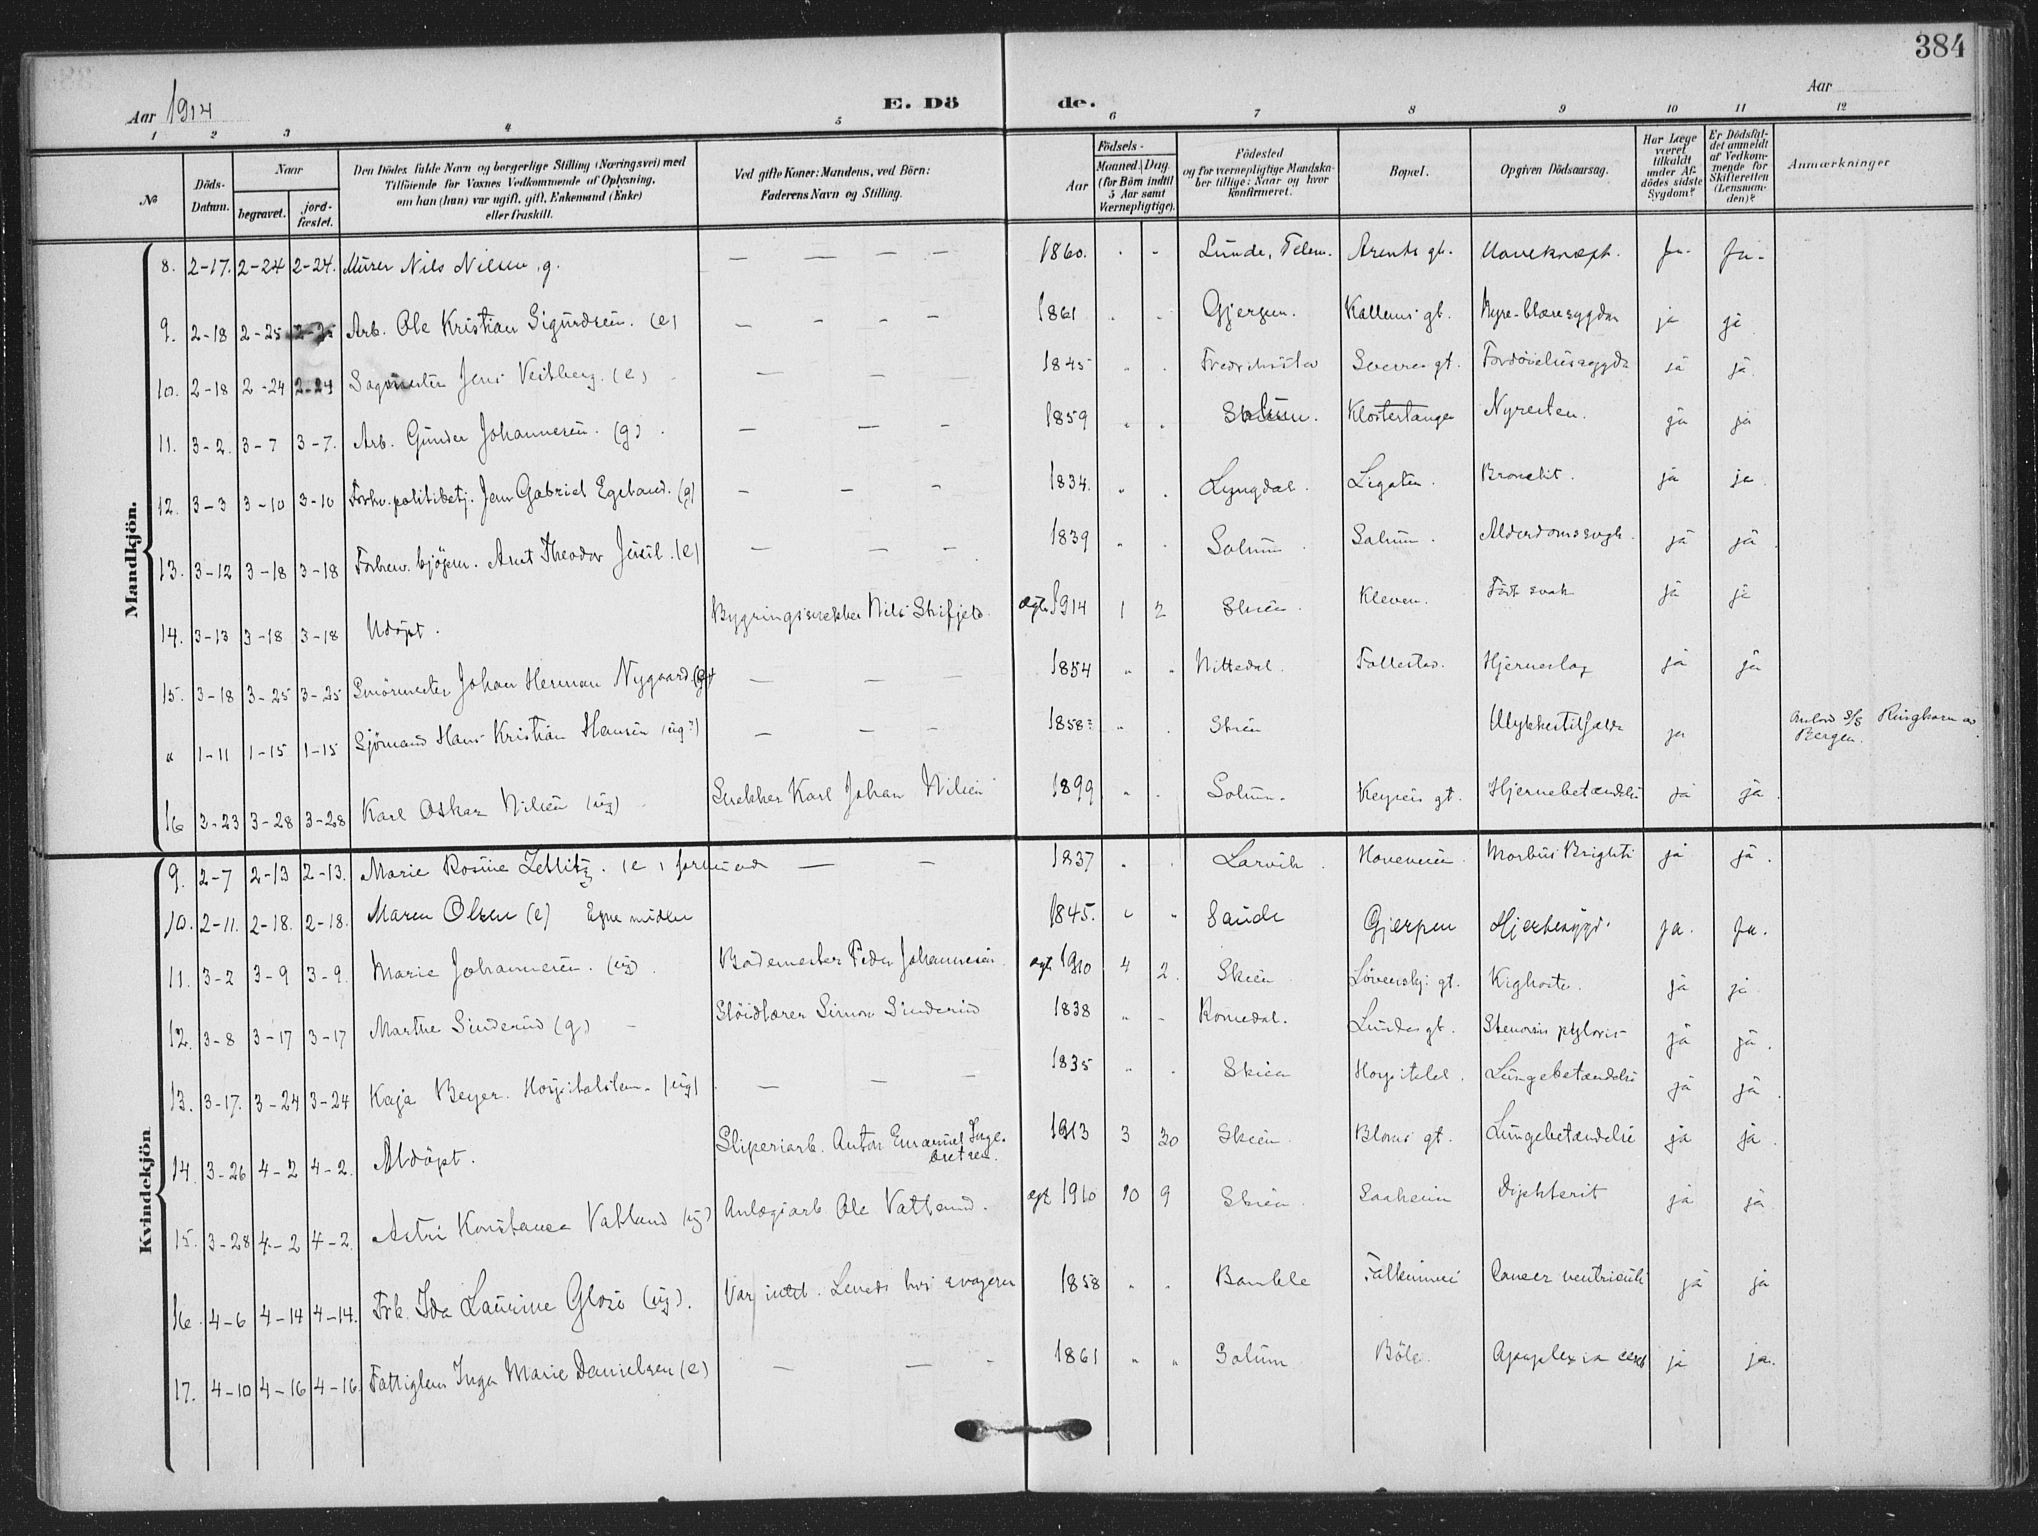 384
Aar 1914
E. Dö
de.
Aar
1 2 3 4 5 6 7 8 9 10 11 12
№
Döds-Datum.
Naar
begravet.
jord-fæstet.
Den Dödes fulde Navn og borgerlige Stilling (Næringsvei) med
Tilföiende for Voxnes Vedkommende af Oplysning,
om han (hun) var ugift, gift, Enkemand (Enke)
eller fraskilt.
Ved gifte Koner: Mandens, ved Börn:
Faderens Navn og Stilling.
Födsels-
Aar
Maaned. Dag.
(for Börn indtil
5 Aar samt
Værnepligtige).
Födested
og for værnepligtige Mandska-
ber tillige: Naar og hvor
konfirmeret.
Bopæl.
Opgiven Dödsaarsag.
Har Læge
været
tilkaldt
under Af-
dödes sidste
Sygdom?
Er Dödsfal-
det anmeldt
af Vedkom-
mende for
Skifteretten
(Lensman-
den)?
Anmærkninger
Mandkjön.
8. 2-17. 2-24 2-24. Murer Nils Nilsen g. — — — — 1860. Lunde, Telem. Arents gt. Ja. Ja.
9. 2-18 2-25 2-25 Arb. Ole Kristian Sigurdsen. (e) — — — — 1861 Gjerpen. Kallems gt. Nyre-blæresygdom ja ja
10. 2-18 2-24 2-24 Jens Veitberg. (e) — — — 1845 Fredrikstad Sverres gt. Fordøielsessygdo ja ja
11. 3-2. 3-7 3-7. Arb. Gunder Johannesen. (g) — — — 1859 Solum. Klostertangen Nyresten. ja ja
12. 3-3 3-10 3-10 Forhv. politibetj. Jens Gabriel Egeland. (g) — — — 1834. Lyngdal. Ligaten. Bronchit. ja ja
13. 3-12 3-18 3-18 Arnt Theodor Juul. (e) — — — 1839 Solum. Solum. Alderdomssvagh. ja ja
14. 3-13 3-18 3-18 Udøpt. Bygningssnekker Nils Skifjeld. ægte 1914 1 2 Skien. Kleven. Født svak ja ja
15. 3-18 3-25 3-25 Johan Herman Nygaard (g) — — — 1854 Nittedal. Follestad. Hjerneslag ja ja
" 1-11 1-15 1-15 Sjømand Hans Kristian Hansen (ug?) — — — 1858? Skien Ulykkestilfælde ja Ombord S/S Ringhorn av Bergen.
16 3-23 3-28 3-28 Karl Oskar Nilsen (ug) Snekker Karl Johan Nilsen 1899 Solum. Keysers gt. Hjernebetændelse ja ja
Kvindekjön
9. 2-7 2-13 2-13. Marie Rosine Zetlitz. (e) — — 1837 Larvik. Hoveveien. Morbus Brighti ja ja.
10. 2-11. 2-18. 2-18. Maren Olsen (e) Egne midler 1845. Saude Gjerpen Hjertesygd. ja. Ja.
11. 3-2 3-9 3-9. Marie Johannesen. (ug) Bademester Peder Johannesen. ægt. 1910 4 2. Skien Løvenskj. gt. Kighoste. ja ja
12. 3-8 3-17 3-17 Marthe Sinderud (g) Sløidlærer Simon Sinderud 1838 Romedal. Lundes gt. Stenosis pylori ja ja.
13. 3-17. 3-24 3-24 Kaja Beyer. Hospitalslem. (ug) — — — 1835 Skien Hospitalet. Lungebetændelse ja ja
14. 3-26 4-2 4-2. Udøpt. Sliperiarb. Anton Emanuel Inge-bretsen. 1913 3 30 Skien. Bloms gt. Lungebetændelse ja ja.
15. 3-28 4-2 4-2. Astri Konstanse Vatland (ug) Anlægsarb Ole Vatland. ægt 1910 10 9 Skien. Saaheim Difterit ja ja
16. 4-6 4-14 4-14. Frk. Ida Laurine Glosø (ug). Var intet. Levede hos svogeren 1858 Bamble Falkumvei Cancer ventriculi ja ja
17. 4-10 4-16 4-16. Fattiglem Inga Marie Danielsen (e) — — 1861 Solum Bøle. Apoplexia cereb ja ja.